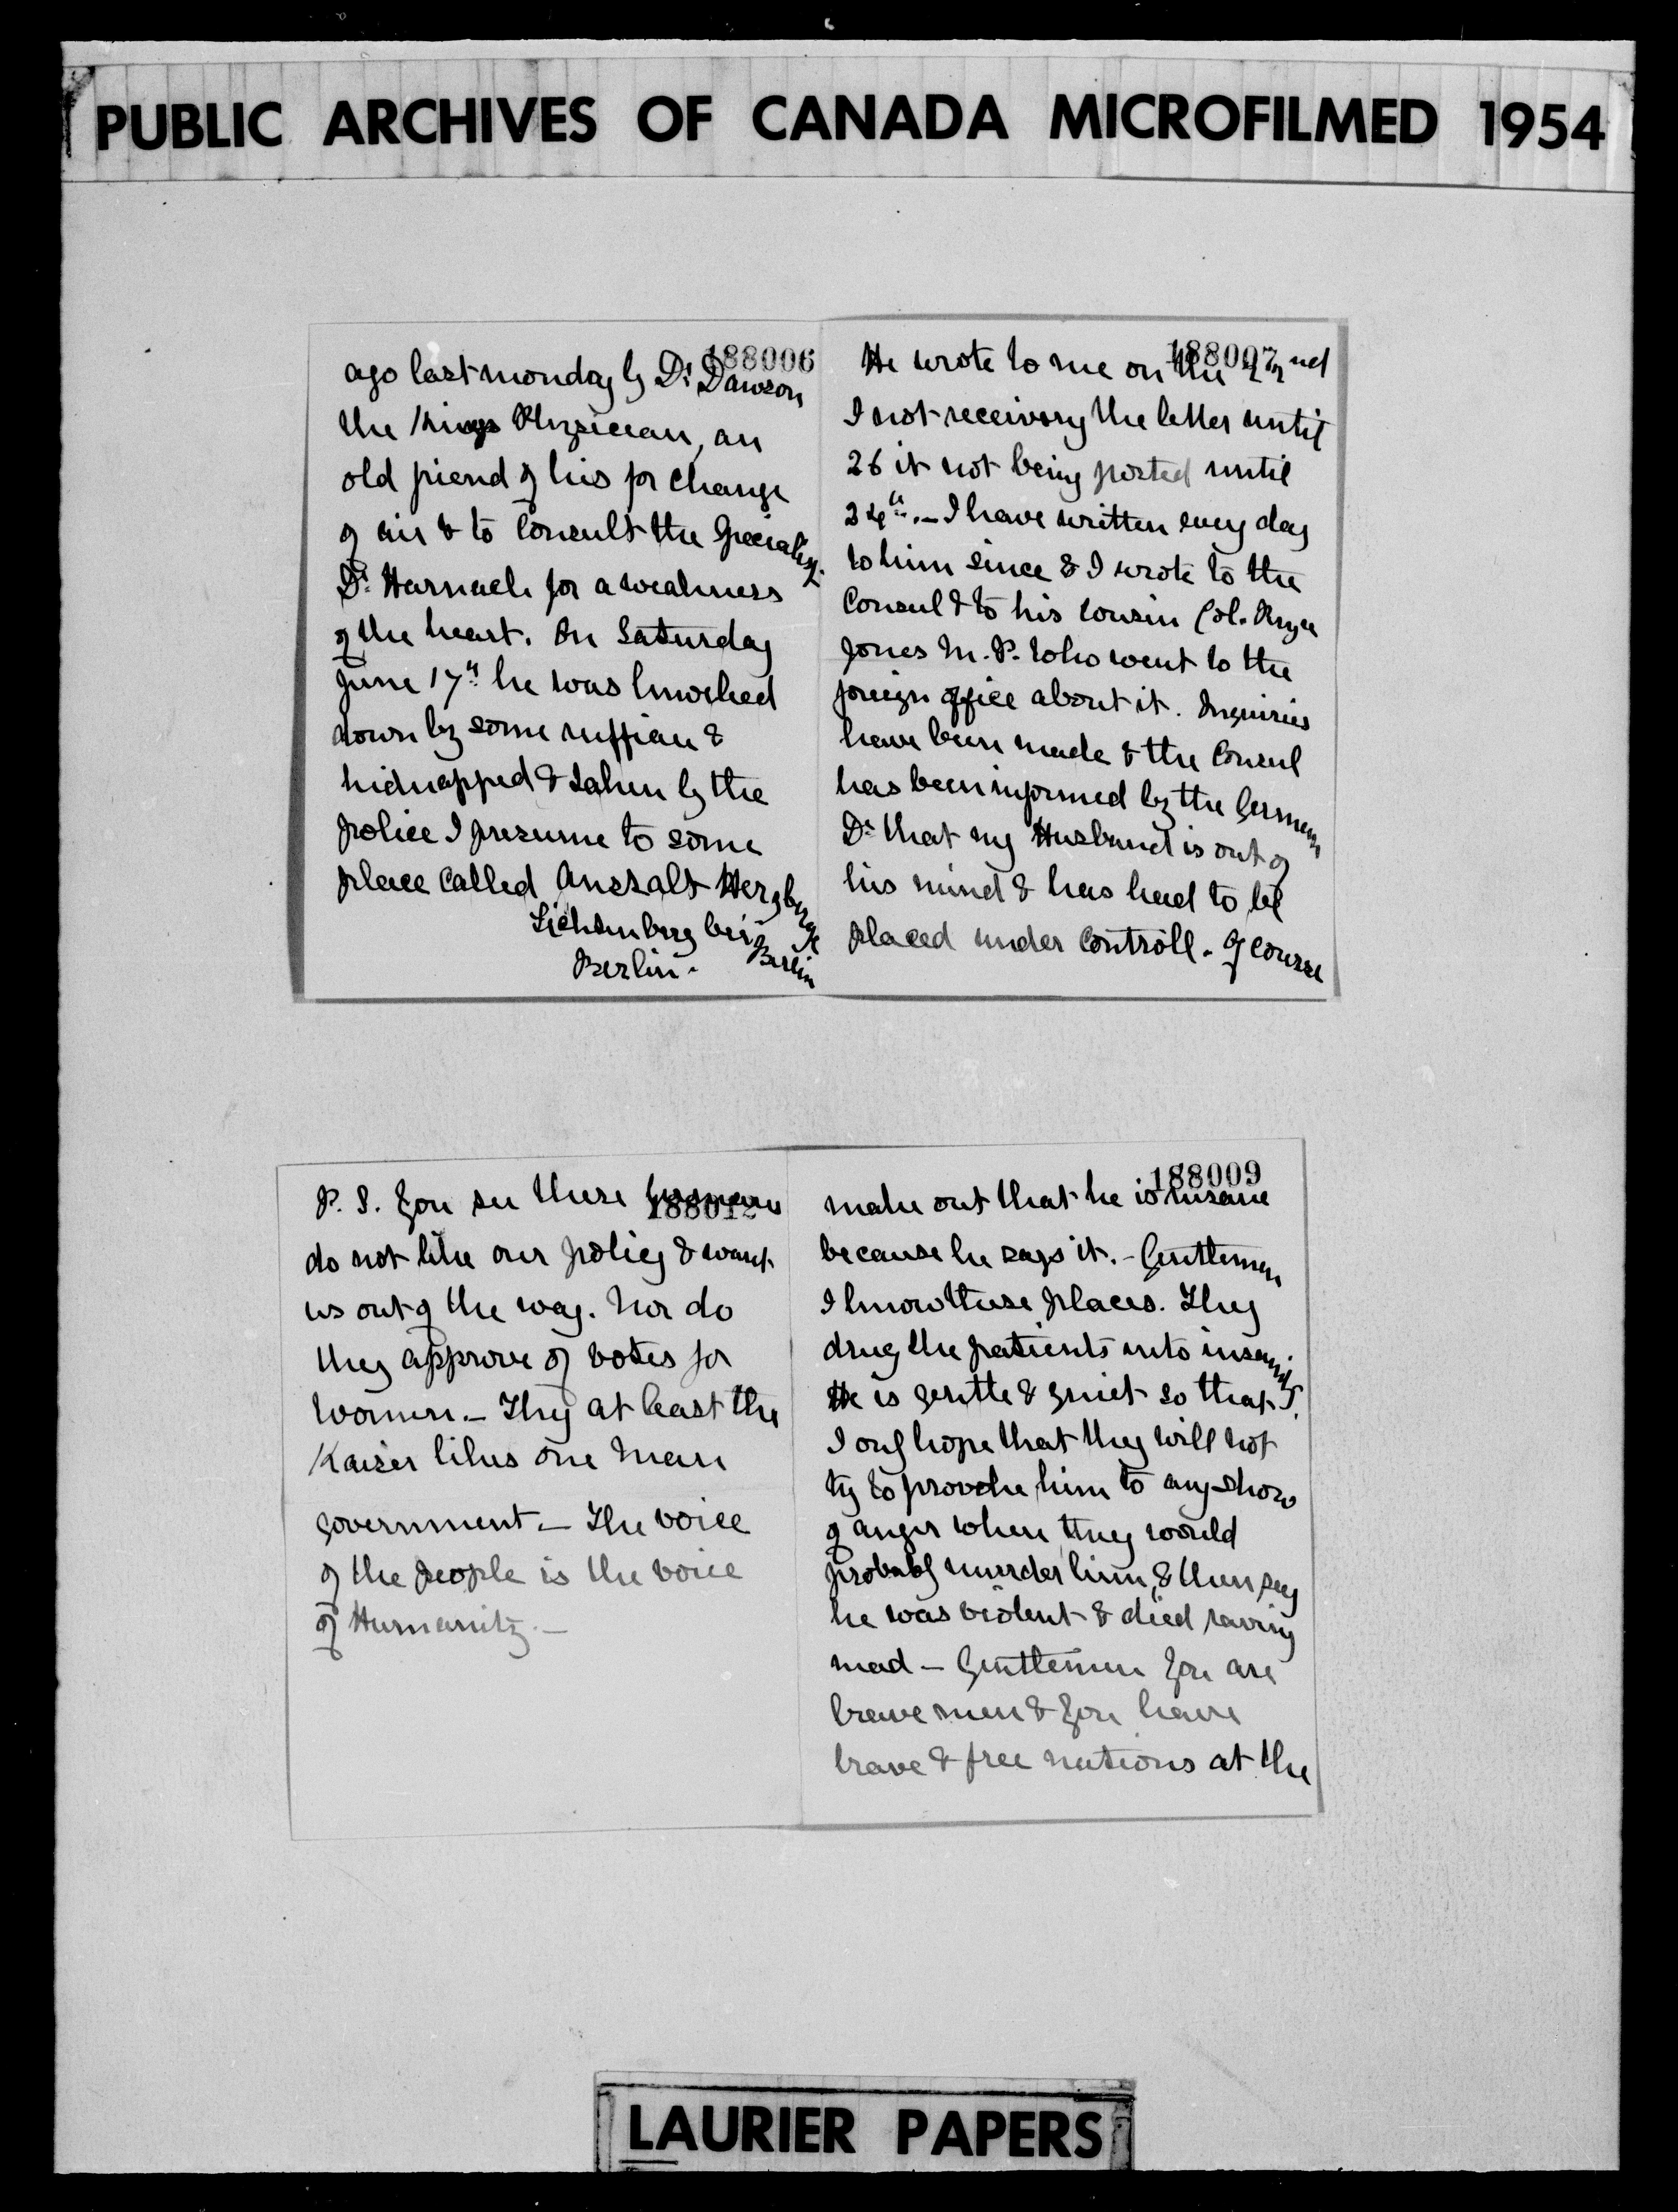 PUBLIC ARCHIVES OF CANADA MICROFILMED 1954
188006
ago last monday by Dr Dawson
the Kings Physician, an
old friend of his for change
of air & to Consult the Specialist.
Dr. Harnack for a weakness
of the heart. On Saturday
June 17th he was knocked
down by some ruffian &
kidnapped & taken by the
police I presume to some
place called Anstalt Herzberge
Lichtenberg bei Berlin
Berlin.
188007
He wrote to me on the 22nd
I not receiving the letter until
26 it not being posted until
24th. — I have written every day
to him since & I wrote to the
Consul & to his cousin Col. Pryce
Jones M.P. who went to the
foreign office about it. Inquiries
have been made & the Consul
has been informed by the German
Dr that my Husband is out of
his mind & has had to be
placed under Controll. Of course
188012
P.S. You see these Germans
do not like our policy & want
us out of the way. Nor do
they approve of votes for
women. — They at least the
Kaiser likes one man
government — The voice
of the people is the voice
of Humanity. —
188009
make out that he is insane
because he says it. — Gentlemen
I know these places. They
drug the patients into insanity.
He is gentle & quiet so that
I only hope that they will not
try to provoke him to any show
of anger when they would
probably murder him, & then say
he was violent & died raving
mad — Gentlemen you are
brave men & you have
brave & free nations at the
LAURIER PAPERS